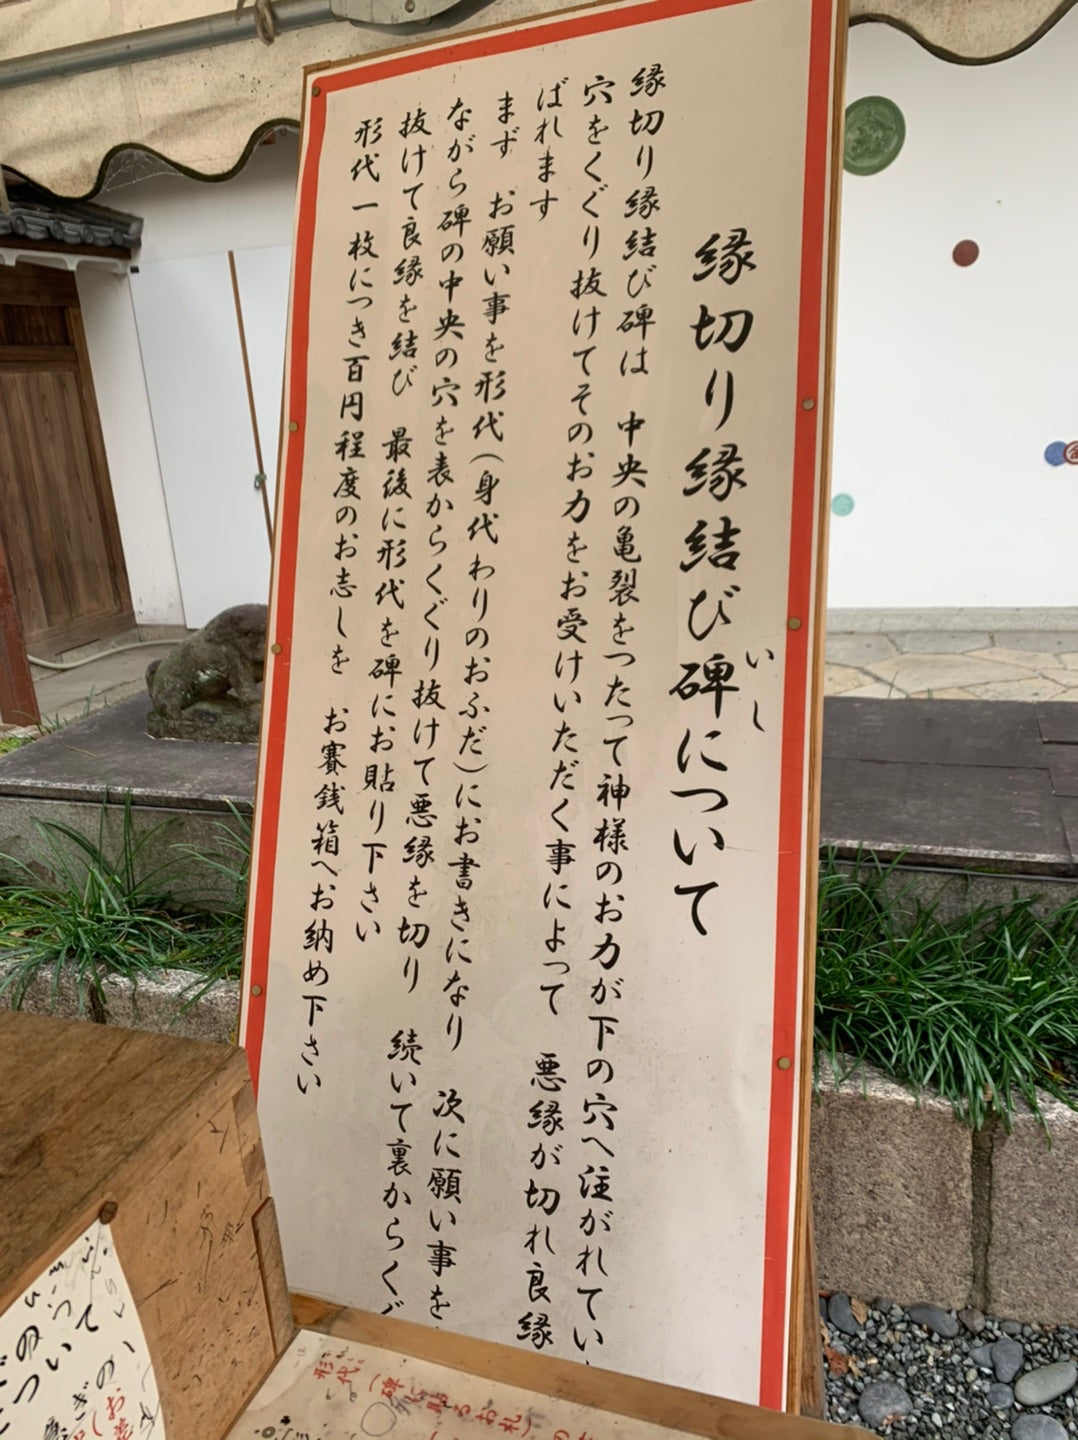 縁切り縁結び碑について
いし
縁切り縁結び碑は　中央の亀裂をつたって神様のお力が下の穴へ注がれてい
穴をくぐり抜けてそのお力をお受けいただく事によって　悪縁が切れ良縁
ばれます
まず　お願い事を形代（身代わりのおふだ）にお書きになり　次に願い事を
ながら碑の中央の穴を表からくぐり抜けて悪縁を切り　続いて裏からくぐ
抜けて良縁を結び　最後に形代を碑にお貼り下さい
形代一枚につき百円程度のお志しを　お賽銭箱へお納め下さい
形代。（碑に貼るお札）の